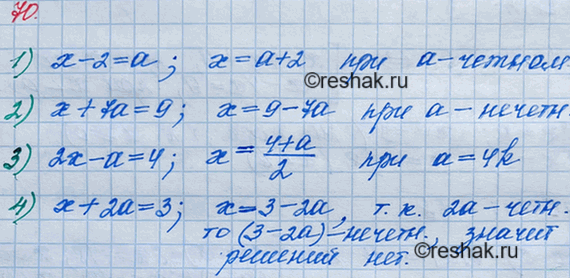 70.
1) x-2=a; x=a+2 при a-четном
©reshak.ru
2) x+7a=9; x=9-7a при a-нечетн.
3) 2x-a=4; x=\frac{4+a}{2} при a=4k
4) x+2a=3; x=3-2a, т.к. 2a-четн.
то (3-2a)-нечетн., значит
решений нет.
©reshak.ru